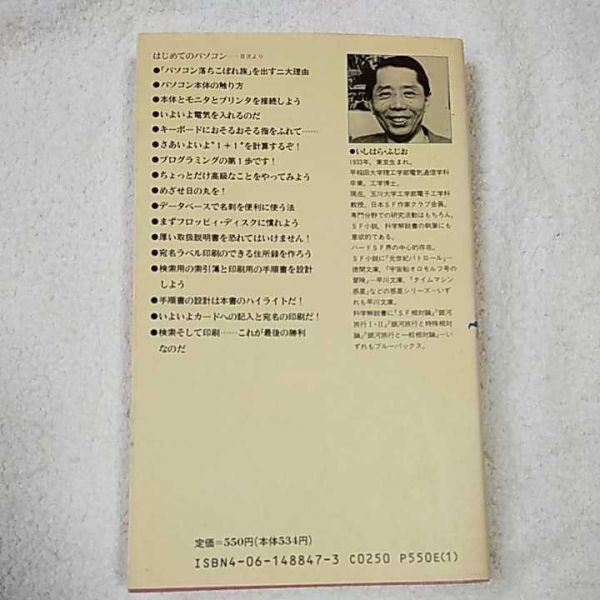 はじめてのパソコン——目次より
●「パソコン落ちこぼれ族」を出す二大理由
●パソコン本体の触り方
●本体とモニタとプリンタを接続しよう
●いよいよ電気を入れるのだ
●キーボードにおそるおそる指をふれて……
●さあいよいよ"1+1"を計算するぞ!
●プログラミングの第1歩です!
●ちょっとだけ高級なことをやってみよう
●めざせ日の丸を!
●データベースで名刺を便利に使う法
●まずフロッピィ・ディスクに慣れよう
●厚い取扱説明書を恐れてはいけません!
●宛名ラベル印刷のできる住所録を作ろう
●検索用の索引簿と印刷用の手順書を設計
しよう
●手順書の設計は本書のハイライトだ!
●いよいよカードへの記入と宛名の印刷だ!
●検索そして印刷……これが最後の勝利
なのだ
●いしはら・ふじお
1933年、東京生まれ。
早稲田大学理工学部電気通信学科
卒業。工学博士。
現在、玉川大学工学部電子工学科
教授。日本SF作家クラブ会員。
専門分野での研究活動はもちろん、
SF小説、科学解説書の執筆にも
意欲的である。
ハードSF界の中心的存在。
SF小説に「光世紀パトロール」—
徳間文庫、「宇宙船オロモルフ号の
冒険」—早川文庫、「タイムマシン
惑星」などの惑星シリーズ—いず
れも早川文庫。
科学解説書に「SF相対論」「銀河
旅行I・II」「銀河旅行と特殊相対
論」「銀河旅行と一般相対論」—い
ずれもブルーバックス。
定価=550円(本体534円)
ISBN4-06-148847-3 C0250 P550E(1)